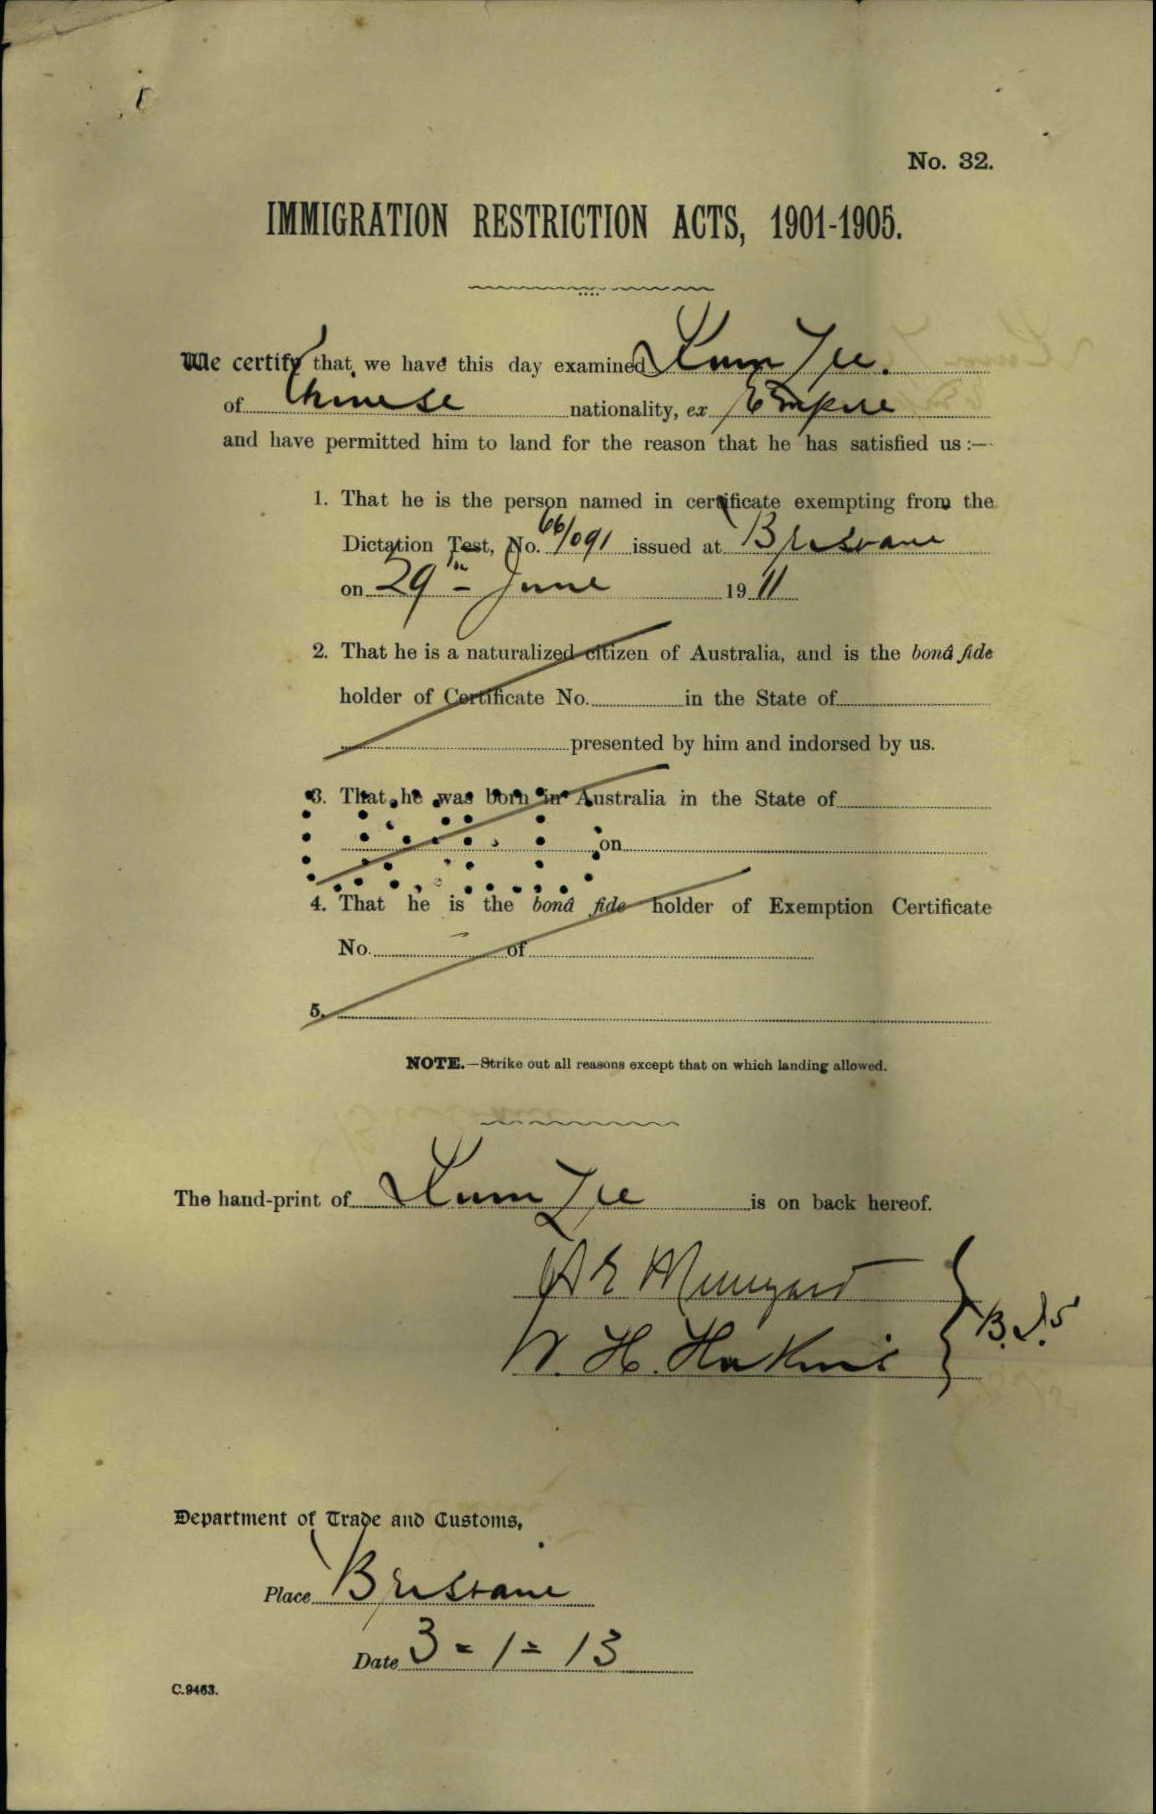 No. 32.
IMMIGRATION RESTRICTION ACTS, 1901-1905.
We certify that we have this day examined Kum Lee.
of Chinese nationality, ex Empire
and have permitted him to land for the reason that he has satisfied us :—
1. That he is the person named in certificate exempting from the
Dictation Test, No. 66/091 issued at Brisbane
on 29th June 1911
2. That he is a naturalized citizen of Australia, and is the bonâ fide
holder of Certificate No. in the State of
presented by him and indorsed by us.
3. That he was born in Australia in the State of
on
4. That he is the bonâ fide holder of Exemption Certificate
No. of
5.
NOTE.—Strike out all reasons except that on which landing allowed.
The hand-print of Kum Lee is on back hereof.
W. H.
Department of Trade and Customs,
Place Brisbane
Date 3=1=13
C.9463.